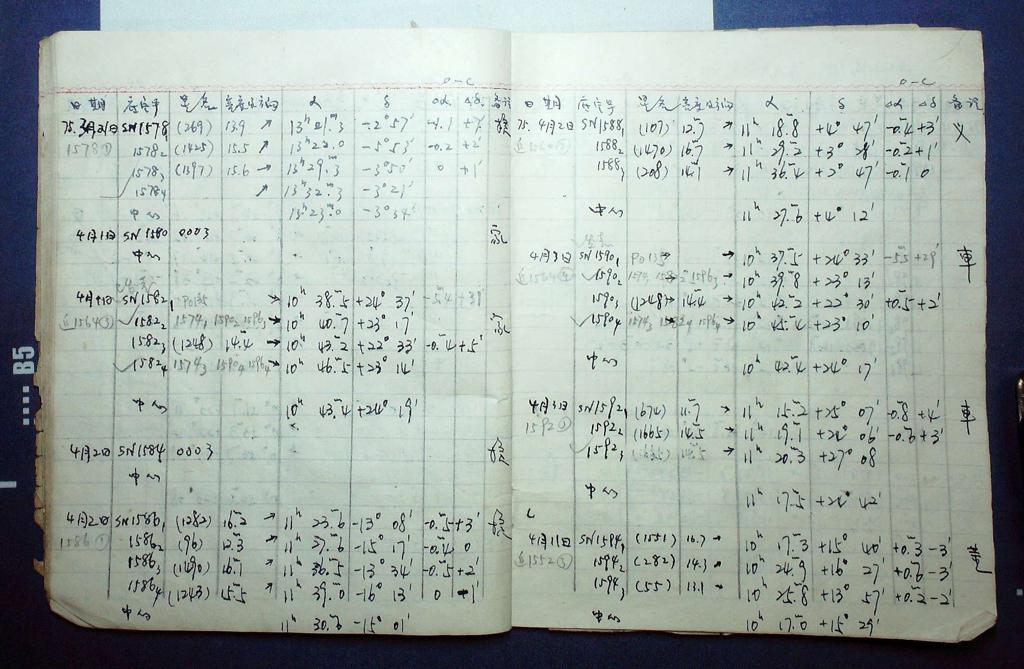 O-C
日期 底片号 星名 亮度及移动 α δ Δα Δδ 备注
75.3月21日 SN1578₁ (269) 13.9 ↗ 13ʰ 21.ᵐ3 -2° 57′
1578① 1578₂ (1425) 15.5 ↗ 13ʰ 22.ᵐ0 -5° 53′ -0.2 +2′
1578₃ (1397) 15.6 → 13ʰ 29.ᵐ3 -3° 50′ 0 +1′
1578₄ ↗ 13ʰ 32.ᵐ3 -3° 21′
中心 13ʰ 23.ᵐ0 -3° 34′
4月1日 SN1580 0003
中心
SN1582₁ P0135 → 10ʰ 38.ᵐ5 +24° 37′ -5.ᵐ4 +31′
近1564③ 1582₂ 1574₁ 1590₂ 1596₃ → 10ʰ 40.ᵐ7 +23° 17′
1582₃ (1248) 14.4 → 10ʰ 43.ᵐ2 +22° 33′ -0.ᵐ4 +5′
1582₄ 1574₃ 1590₄ 1596₄ → 10ʰ 46.ᵐ5 +23° 14′
中心 10ʰ 43.ᵐ4 +24° 19′
4月2日 SN1584 0003
中心
4月2日 SN1586₁ (1282) 16.2 ↗ 11ʰ 23.ᵐ6 -13° 08′ -0.ᵐ5 +3′
1586① 1586₂ (96) 12.3 → 11ʰ 37.ᵐ6 -15° 17′ -0.ᵐ4 0
1586₃ (1490) 16.7 → 11ʰ 36.ᵐ5 -13° 34′ -0.ᵐ5 +2′
1586₄ (1243) 15.5 → 11ʰ 39.ᵐ0 -16° 13′ 0 +1′
中心 11ʰ 30.ᵐ6 -15° 01′
O-C
日期 底片号 星名 亮度及移动 α δ Δα Δδ 备注
75.4月2日 SN1588₁ (107) 12.7 → 11ʰ 18.ᵐ8 +4° 47′ -0.ᵐ4 +3′
1588₂ (1470) 16.7 → 11ʰ 29.ᵐ2 +3° 28′ -0.ᵐ2 +1′
1588₃ (208) 14.1 → 11ʰ 36.ᵐ4 +2° 47′ -0.ᵐ1 0
中心 11ʰ 27.ᵐ6 +4° 12′
4月3日 SN1590₁ P0135 → 10ʰ 37.ᵐ5 +24° 33′ -5.ᵐ5 +29′ 車
1590₂ → 10ʰ 39.ᵐ8 +23° 13′
1590₃ (1248) 14.4 → 10ʰ 42.ᵐ2 +22° 30′ +0.ᵐ5 +2′
1590₄ 1574₃ 1582₄ 1596₄ → 10ʰ 45.ᵐ4 +23° 10′
中心 10ʰ 42.ᵐ4 +24° 17′
4月3日 SN1592₁ (674) 11.7 → 11ʰ 15.ᵐ2 +25° 07′ -0.ᵐ8 +4′ 車
1592① 1592₂ (1665) 14.5 → 11ʰ 19.ᵐ1 06′ -0.ᵐ6 +3′
1592₃ → 11ʰ 20.ᵐ3 +27° 08
中心 11ʰ 17.ᵐ5 42′
4月11日 SN1594₁ (1551) 16.7 → 10ʰ 17.ᵐ3 +15° 40′ +0.ᵐ3 -3′
近1552③ 1594₂ (282) 14.3 → 10ʰ 24.ᵐ9 +16° 27′ +0.ᵐ6 -3′
1594₃ (55) 13.1 → 10ʰ 25.ᵐ8 +13° 57′ +0.ᵐ2 -2′
中心 10ʰ 17.ᵐ0 +15° 29′
B5